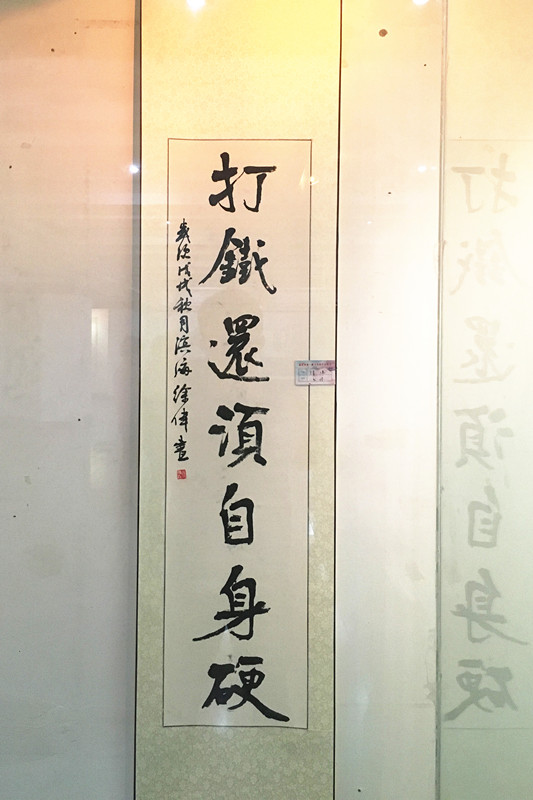 打鐵還須自身硬
歲次戊戌秋月滨海徐偉書